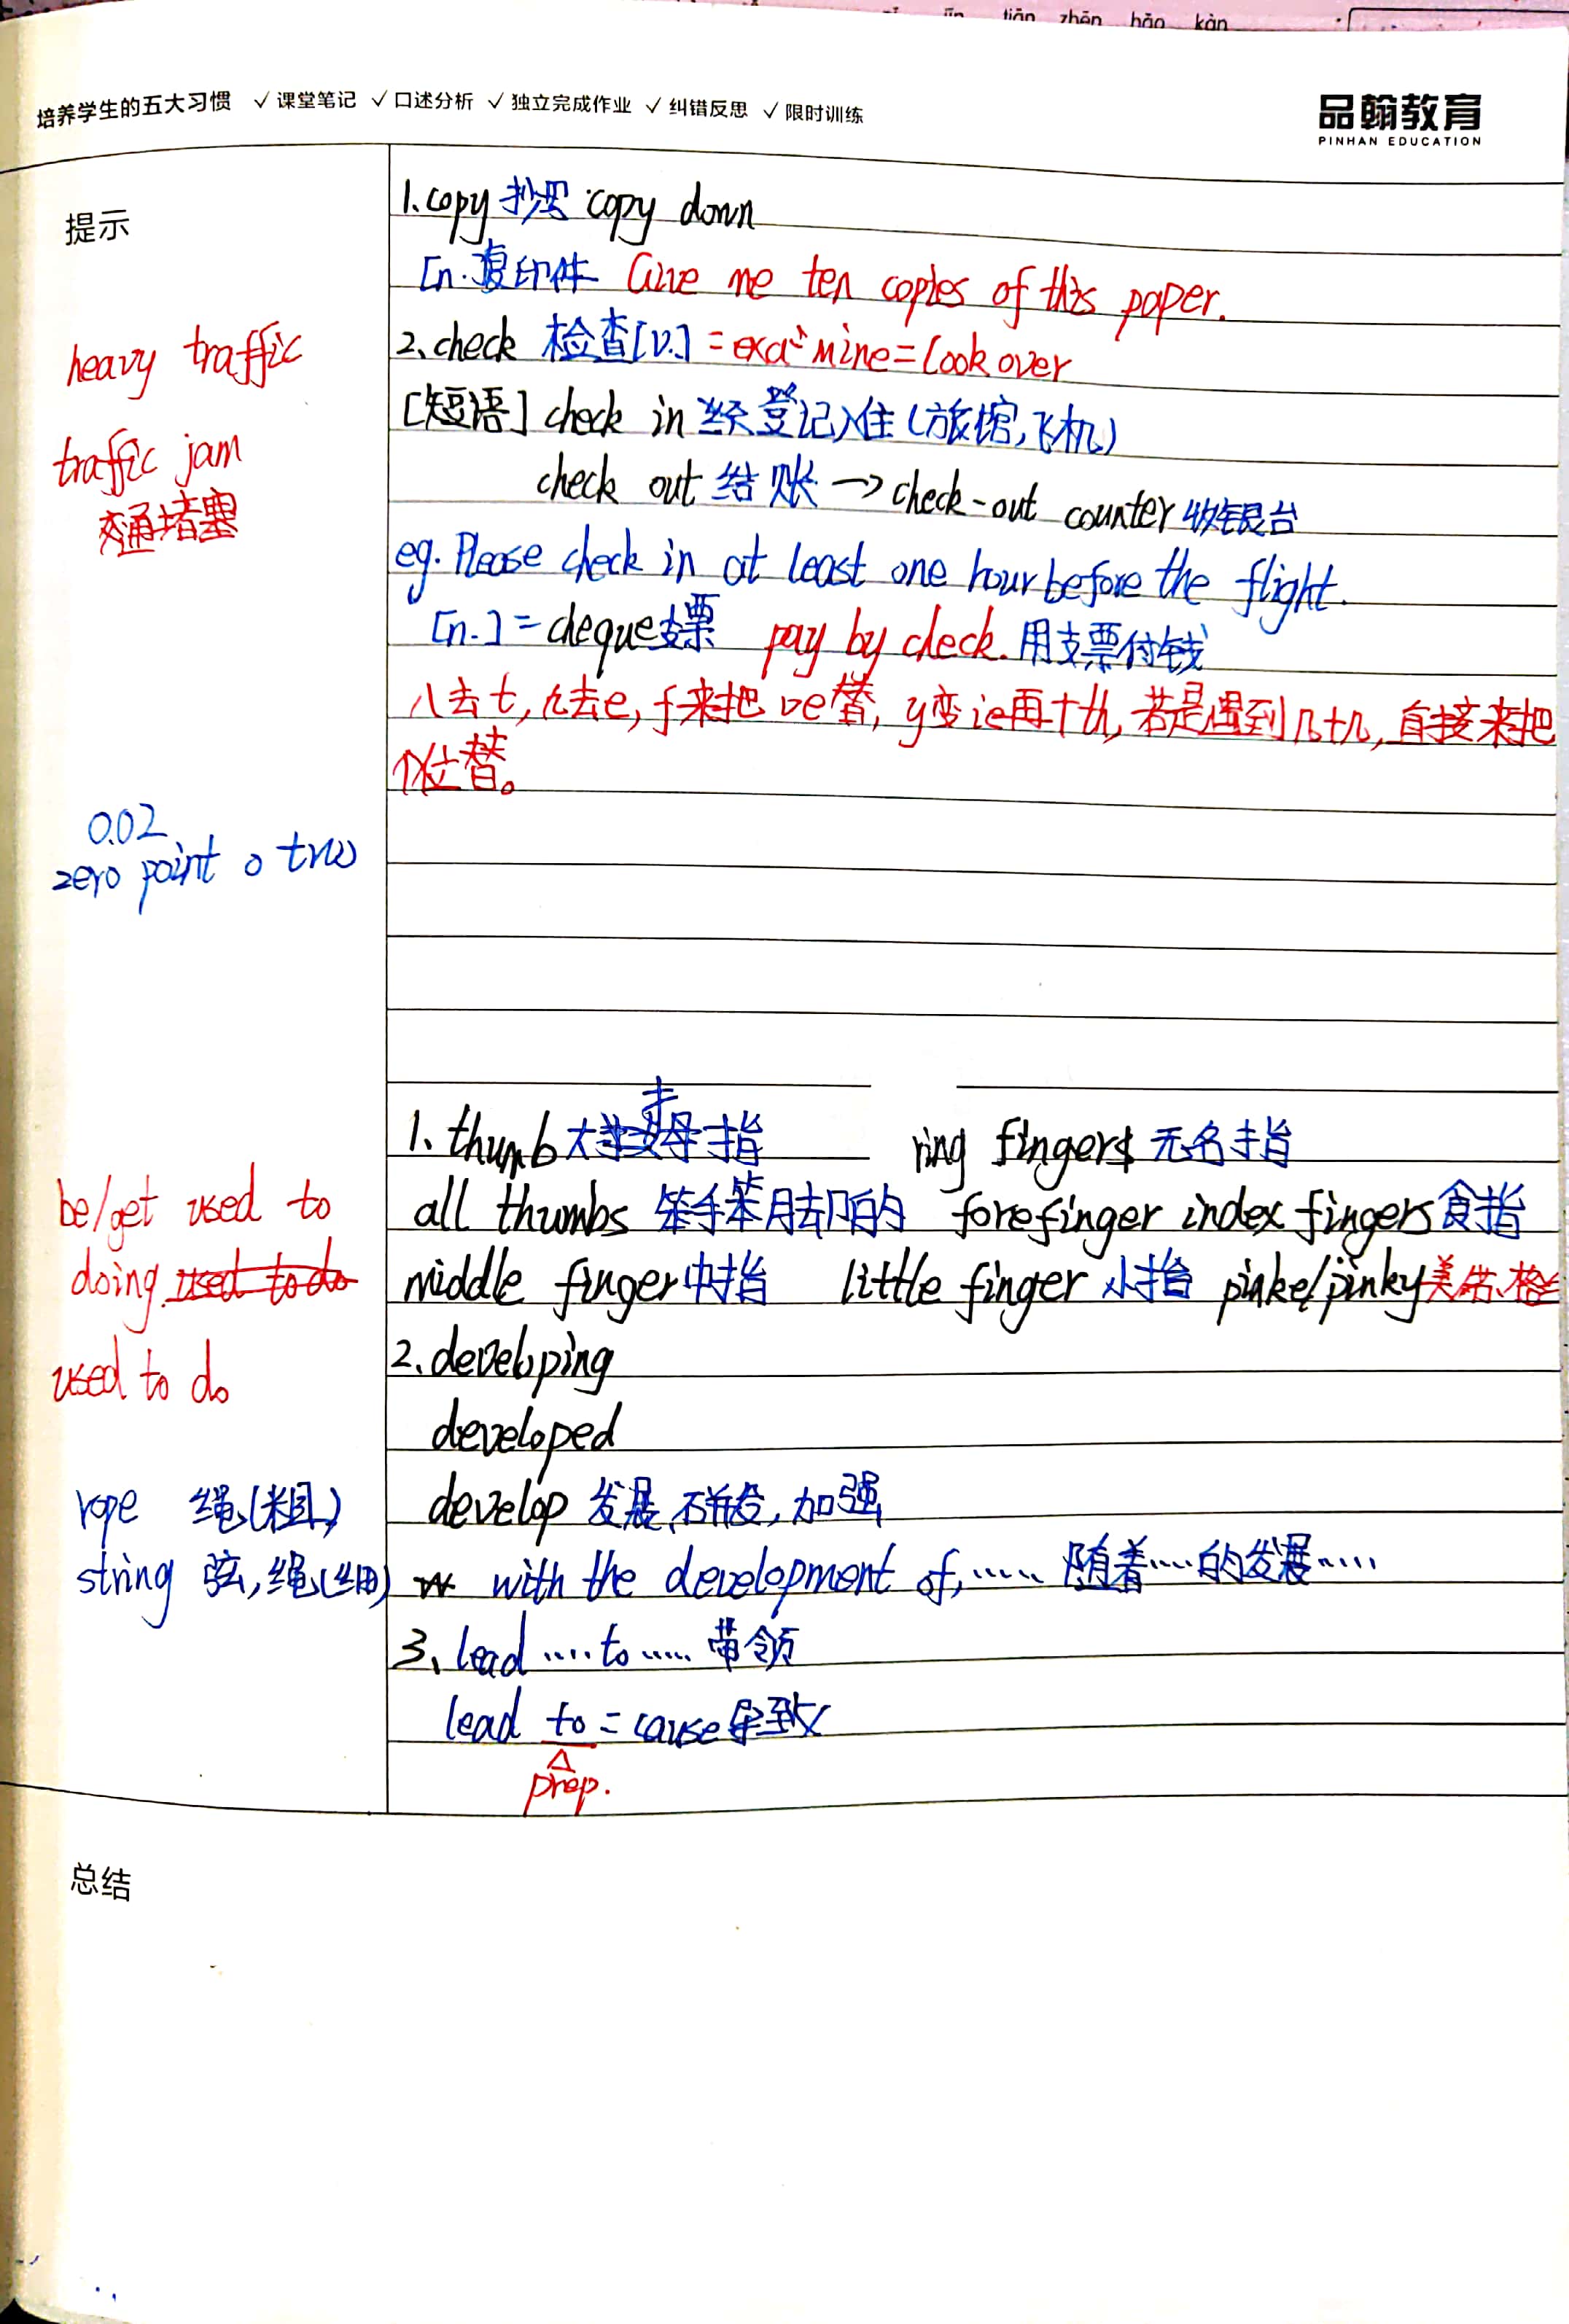 tiān zhēn hǎo kàn
培养学生的五大习惯 ✓课堂笔记 ✓口述分析 ✓独立完成作业 ✓纠错反思 ✓限时训练
品翰教育
PINHAN EDUCATION
提示
heavy traffic
traffic jam
交通堵塞
0.02
zero point o two
be/get used to
doing used to do
used to do
rope 绳(粗)
string 弦,绳(细)
1.copy 抄写 copy down
[n.复印件 Give me ten copies of this paper.
2.check 检查[v.]=examine=look over
[短语] check in 登记入住(旅馆,飞机)
check out 结账→check-out counter 收银台
eg. Please check in at least one hour before the flight.
[n.]=cheque支票 pay by check.用支票付钱
八去t,九去e,f来把ve替,y变ie再+th,若是遇到几十几,直接来把
个位替。
1.thumb 大拇指 ring fingers 无名指
all thumbs 笨手笨脚的 forefinger index fingers食指
middle finger中指 little finger 小指 pinke/pinky美、苏格兰
2.developing
developed
develop 发展,研发,加强
with the development of,…… 随着……的发展……
3、lead……to…… 带领
lead to = cause导致
prep.
总结